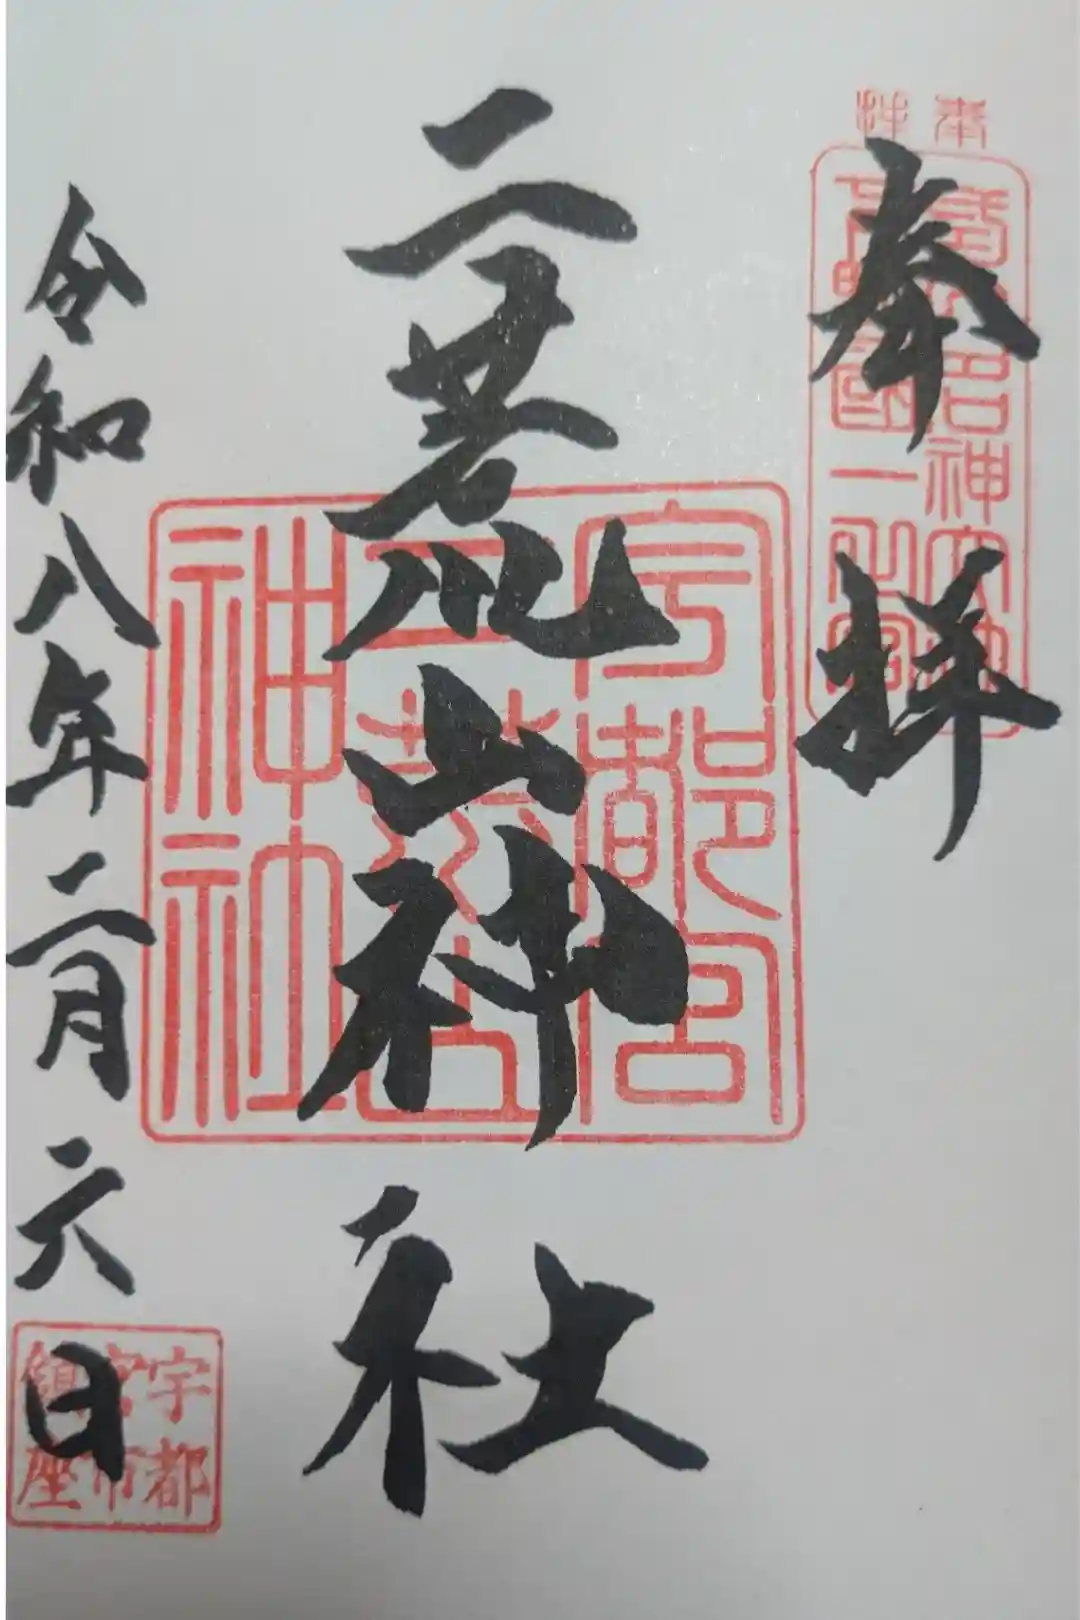 奉拝
二荒山神社
宇都宮
二荒山
神社
令和八年二月六日
宇都
宮市
鎮座